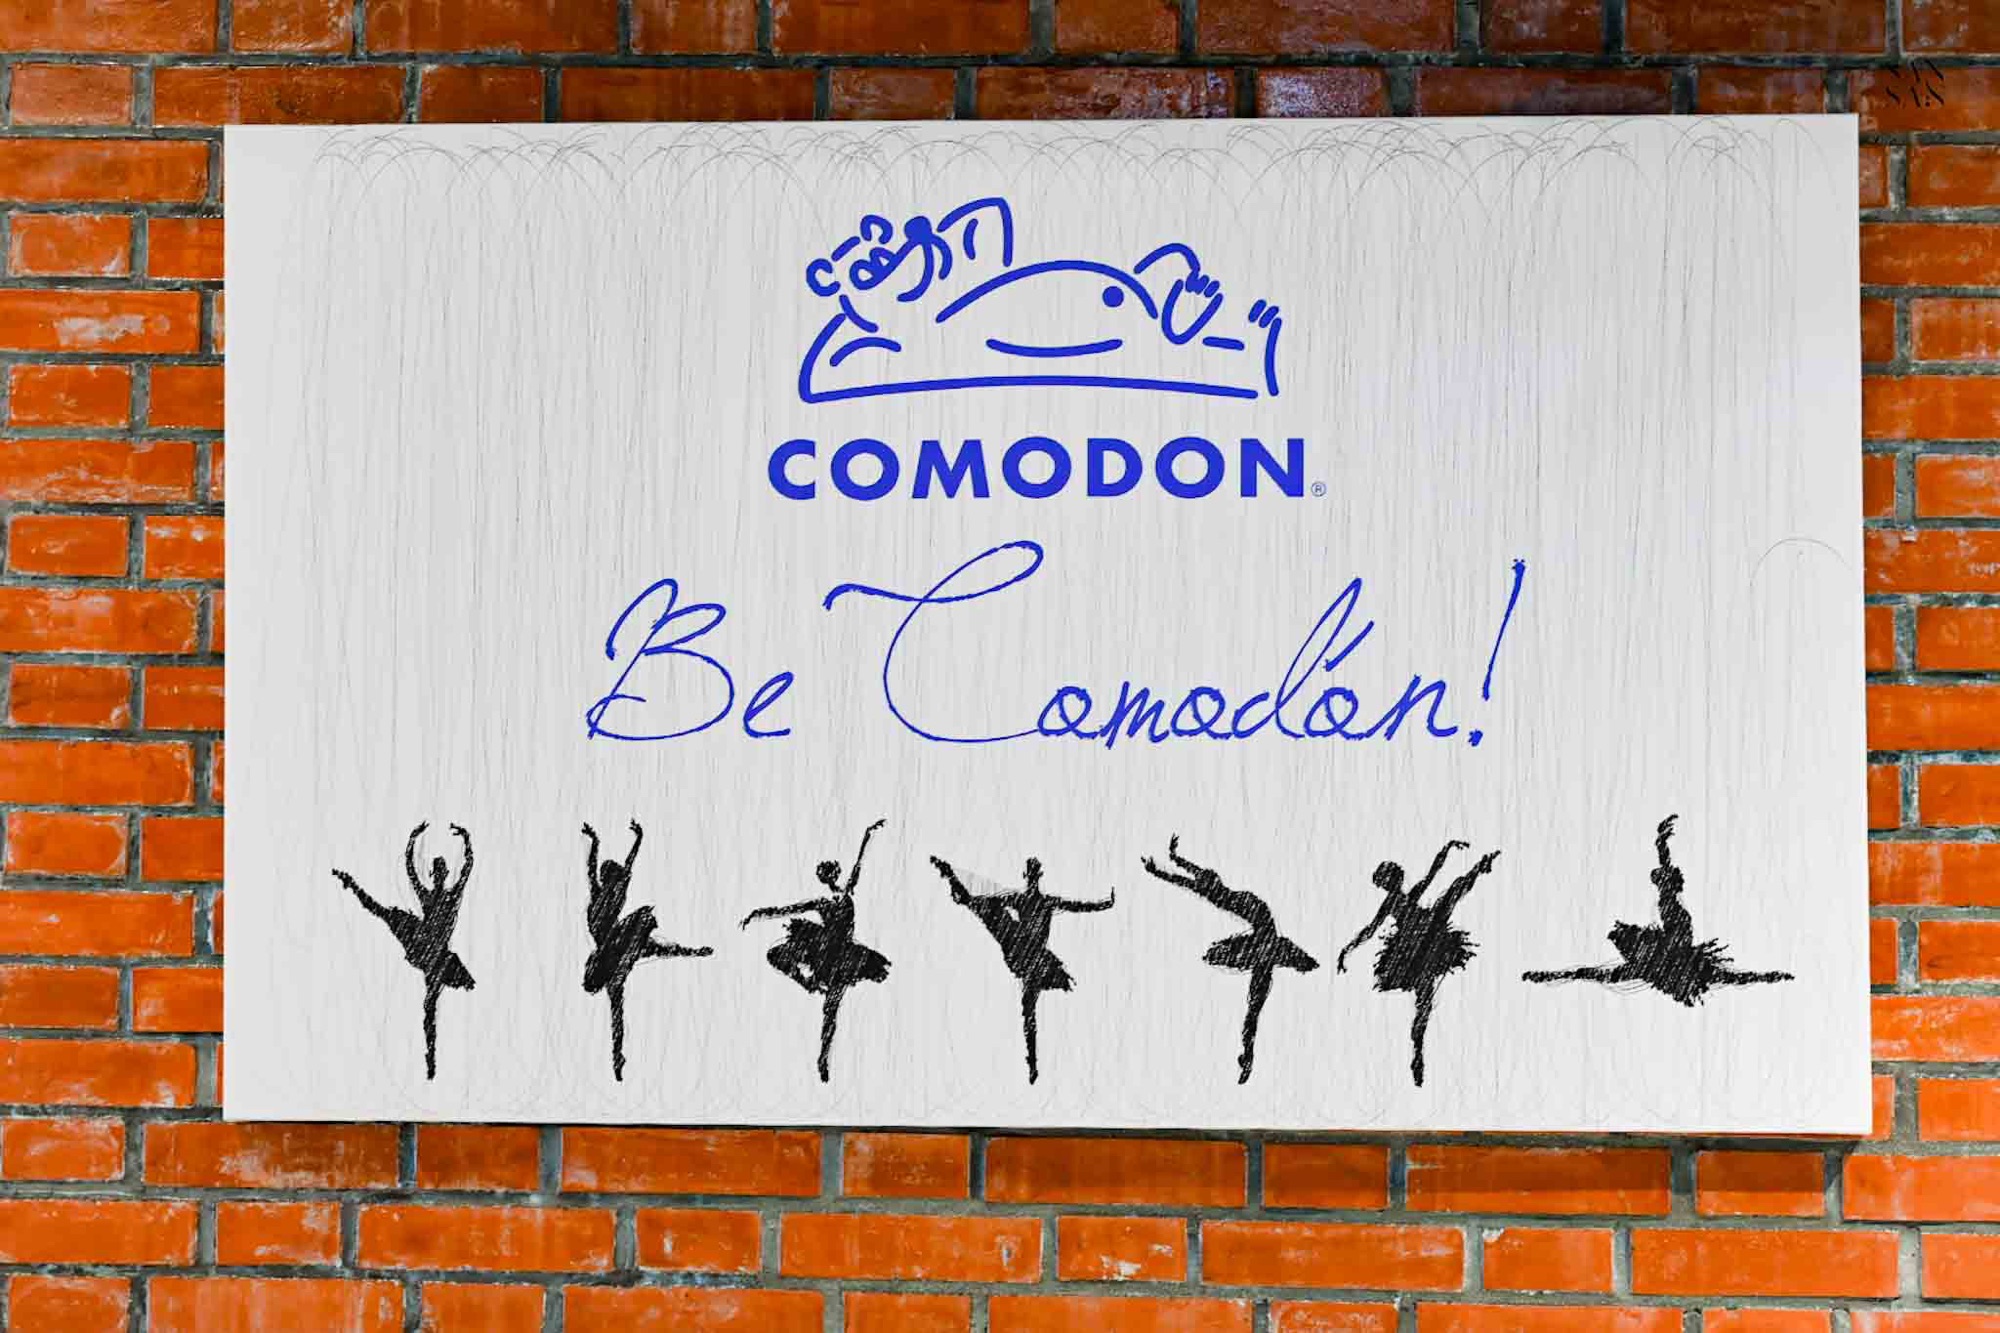 COMODON®
Be Comodón!